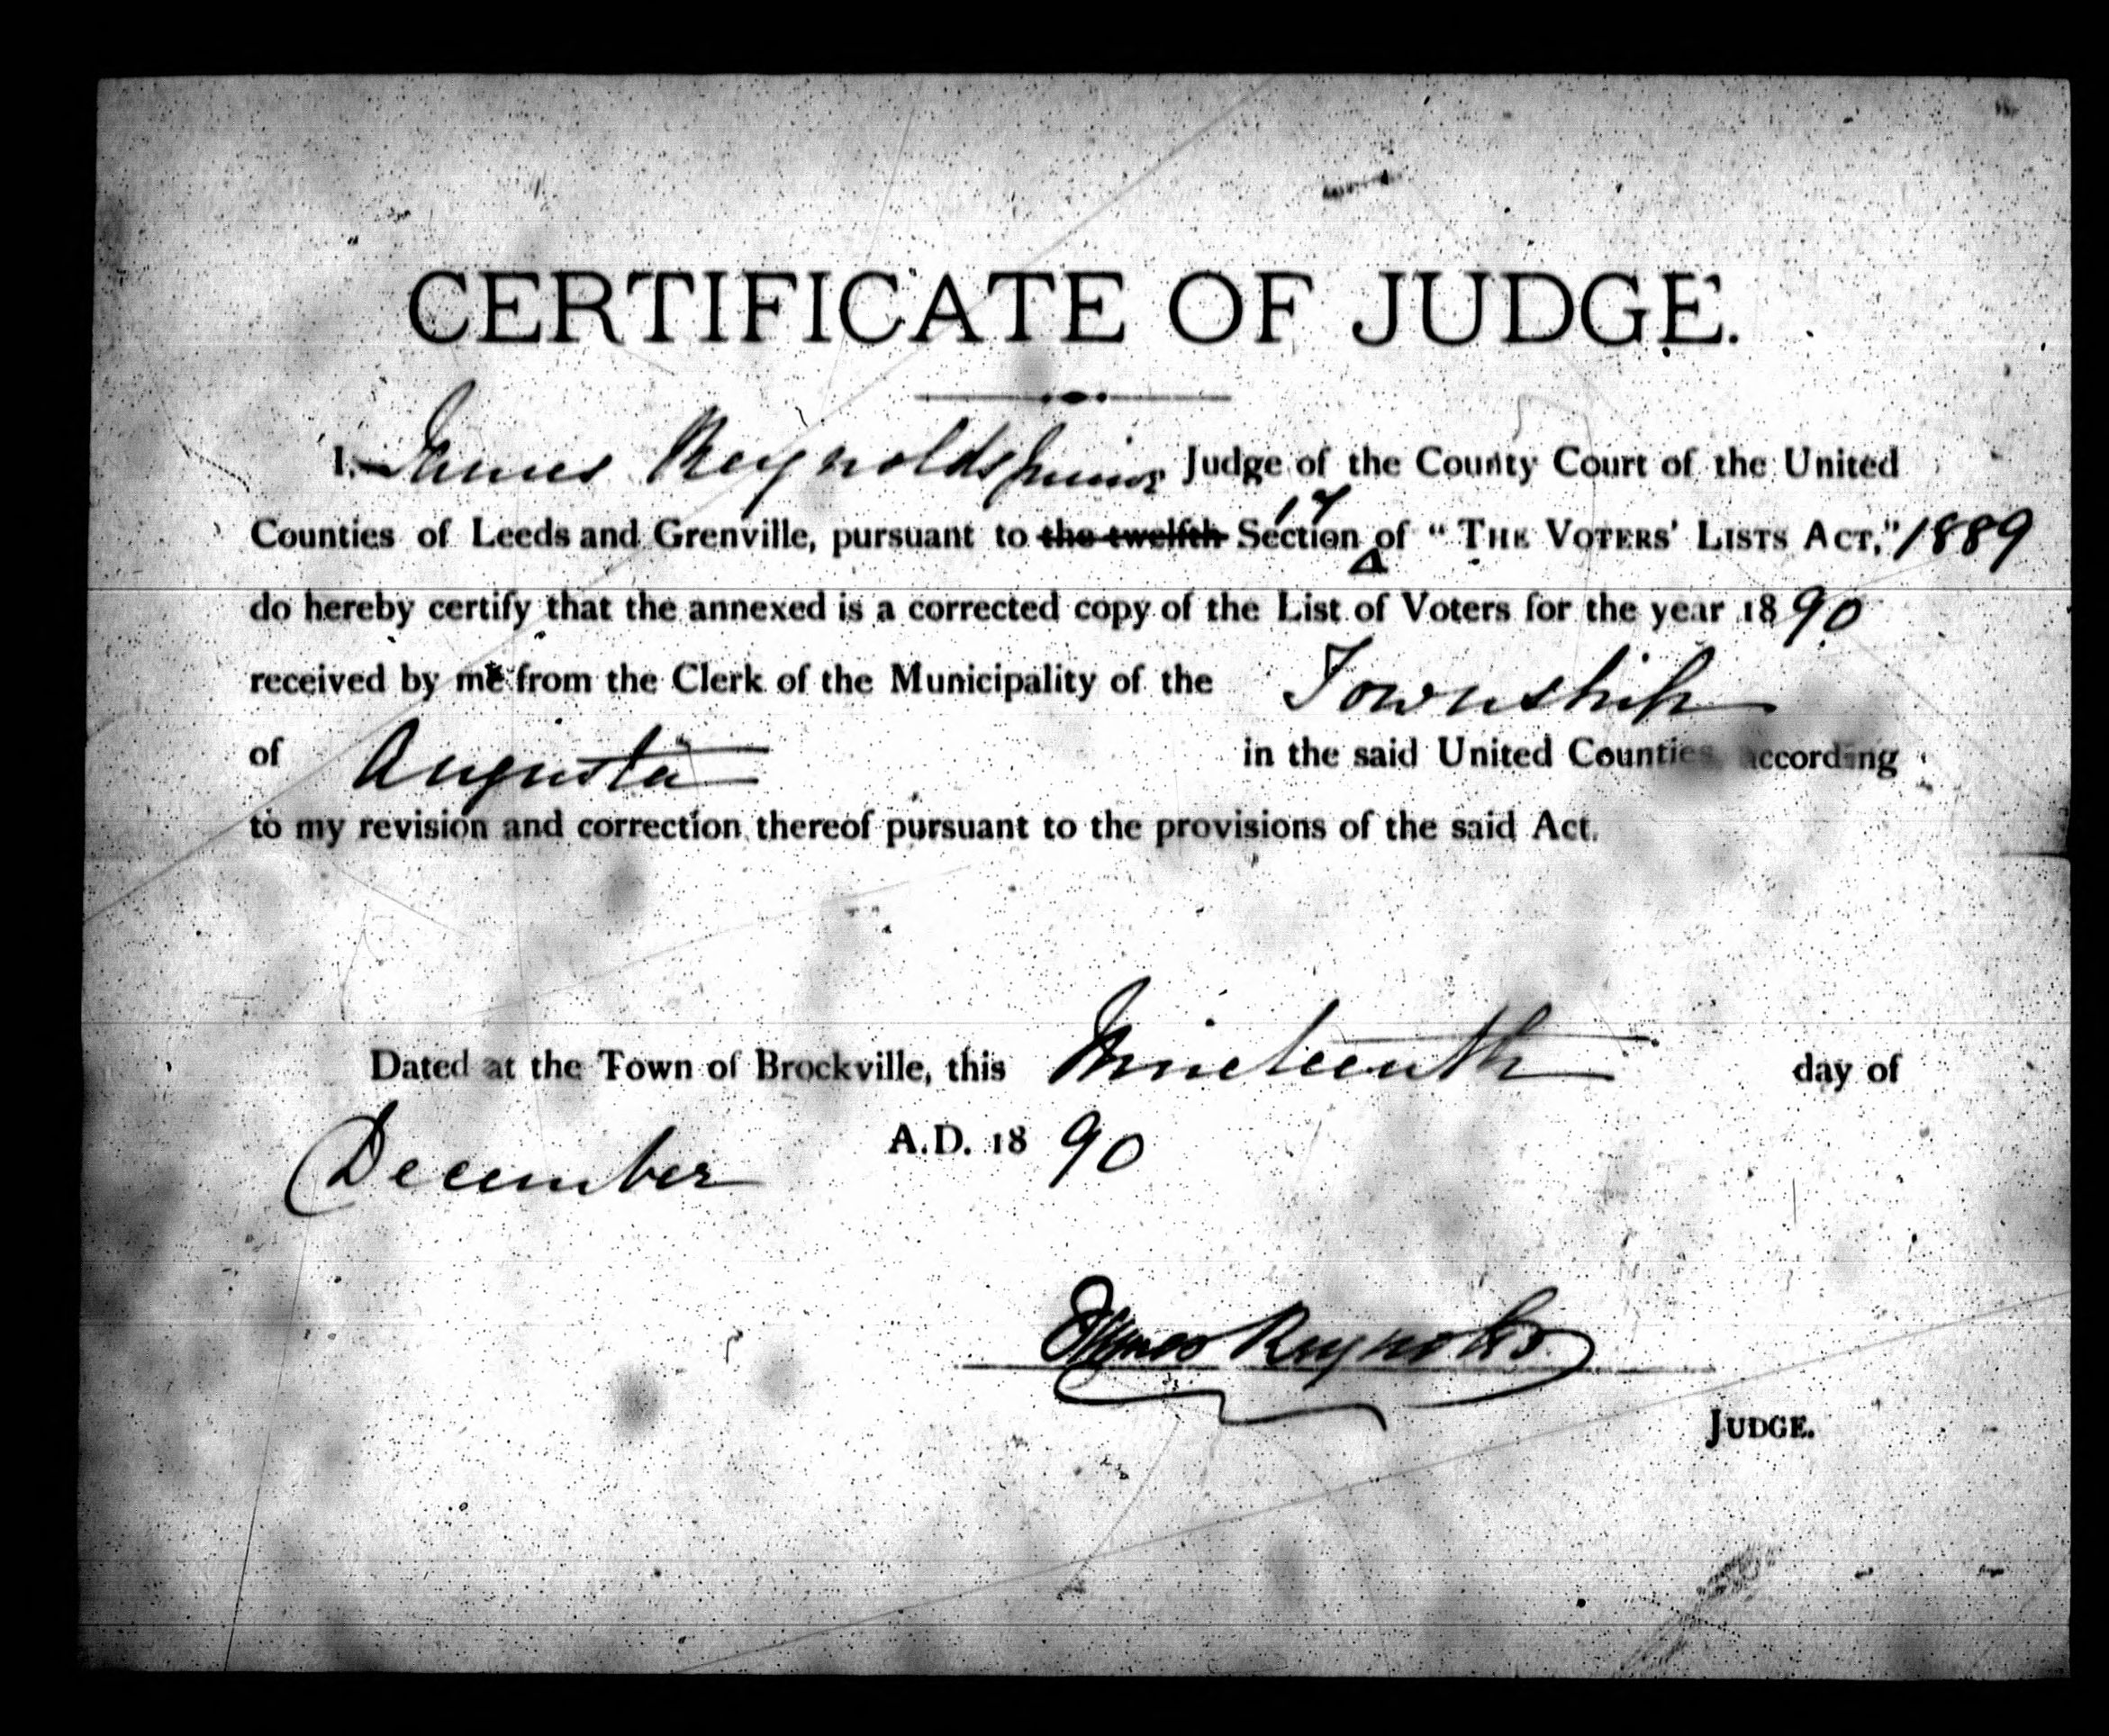 CERTIFICATE OF JUDGE.
I, James Reynolds Junior Judge of the County Court of the United
Counties of Leeds and Grenville, pursuant to the twelfth Section 17 of "THE VOTERS' LISTS ACT," 1889
do hereby certify that the annexed is a corrected copy of the List of Voters for the year 1890
received by me from the Clerk of the Municipality of the Township
of Augusta in the said United Counties, according
to my revision and correction thereof pursuant to the provisions of the said Act.
Dated at the Town of Brockville, this Nineteenth day of
December A.D. 1890
James Reynolds
JUDGE.